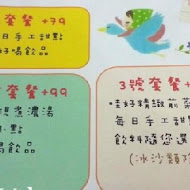 套餐 +79
日手工甜點
好喝飲品
套餐 +99
想煮濃湯
甜點
喝飲品
3號套餐 +
•老好精緻前菜
每日手工甜點
飲料隨您選
(冰沙類